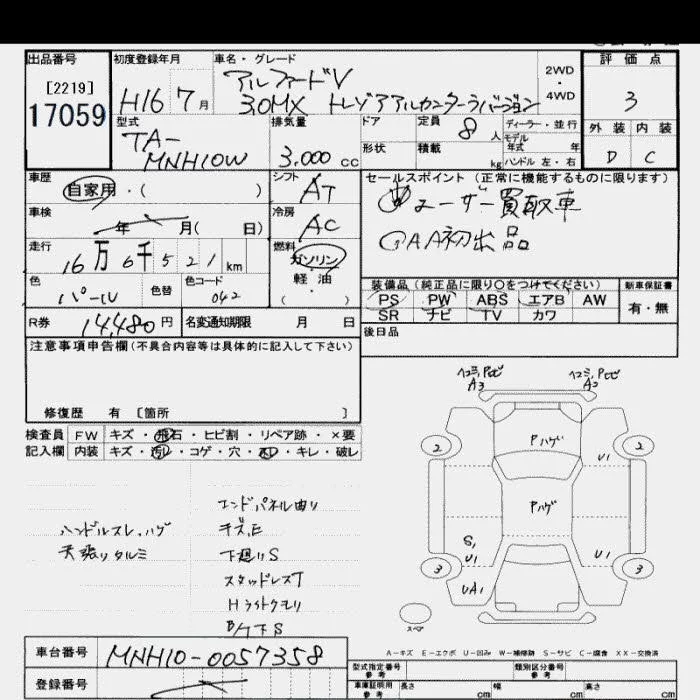 出品番号
[2219]
17059
初度登録年月
H16 7月
車名・グレード
アルファードV
3.0MX トレゾアアルカンターラバージョン
2WD
・
4WD
評価点
3
外装 内装
D C
型式
TA-
MNH10W
排気量
3.000 cc
ドア
形状
定員 8人
積載 kg
ディーラー・並行
モデル
年式 年
ハンドル 左・右
車歴
自家用・( )
シフト
AT
車検
年 月( 日)
冷房
AC
走行
16万6千521km
燃料
ガソリン
軽・油
・( )
色
パール
色替
色カラーコード
042
R券 14,480円
名変通知期限 月 日
セールスポイント(正常に機能するものに限ります)
ユーザー買取車
AA初出品
装備品(純正品に限り○をつけてください)
PS PW ABS エアB AW
SR ナビ TV カワ
新車保証書
有・無
後日品
注意事項申告欄(不具合内容等は具体的に記入して下さい)
修復歴 有 〔箇所 〕
検査員 FW キズ・飛石・ヒビ割・リペア跡・×要
記入欄 内装 キズ・汚レ・コゲ・穴・ネジ・キレ・破レ
ハンドルスレ、ハゲ
天張りタルミ
エンドパネル曲り
キズ,E
下廻りS
スタッドレスT
Hライトクモリ
B/T下S
A3
2
2
Pハゲ
U1
Pハゲ
S1
U1
U1
3
3
UA1
スペア
A-キズ E-エクボ U-凹み W-補修跡 S-サビ C-腐食 XX-交換済
車台番号 MNH10-0057358
登録番号
型式指定番号
参考
類別区分番号
参考
車庫証明用
参考
長さ cm
幅 cm
高さ cm